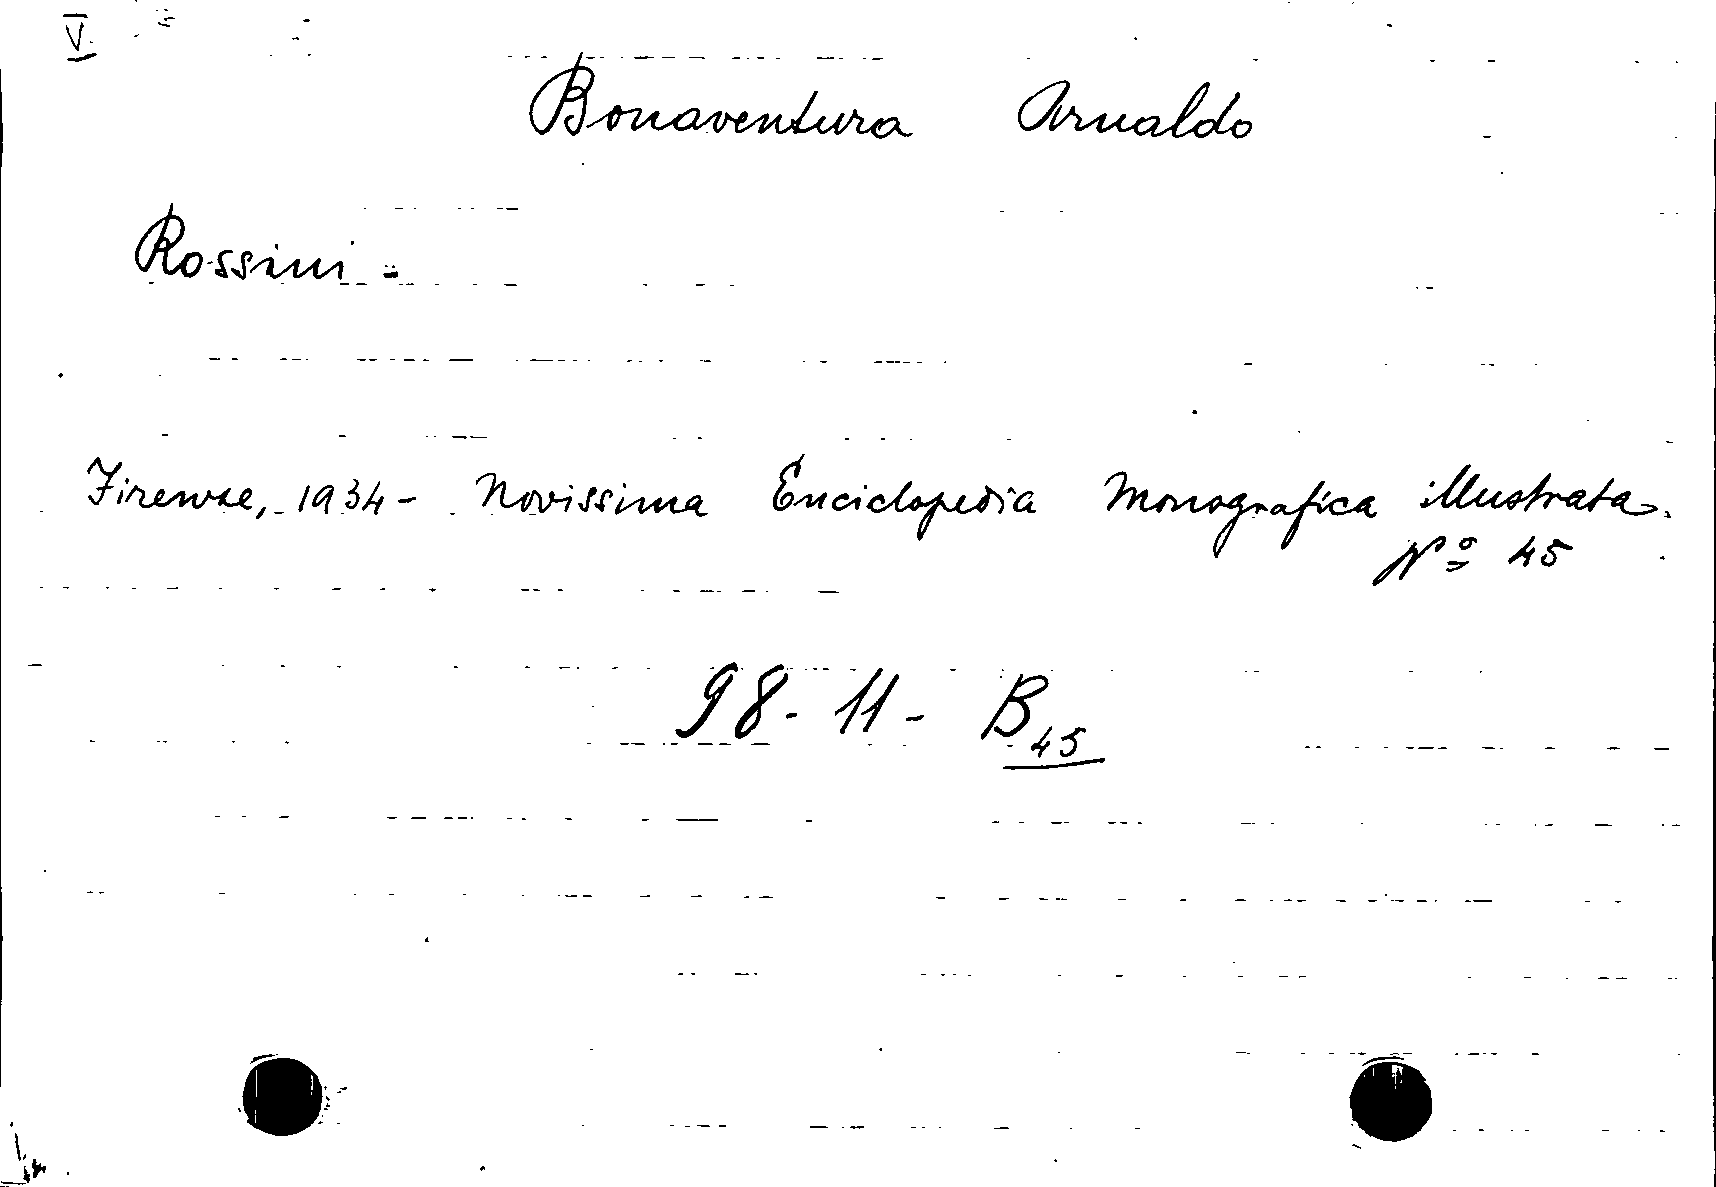 V
Bonaventura Arnaldo
Rossini -
Firenze, 1934 - Novissima Enciclopedia Monografica illustrata.
Nº 45
98 - 11 - B 45